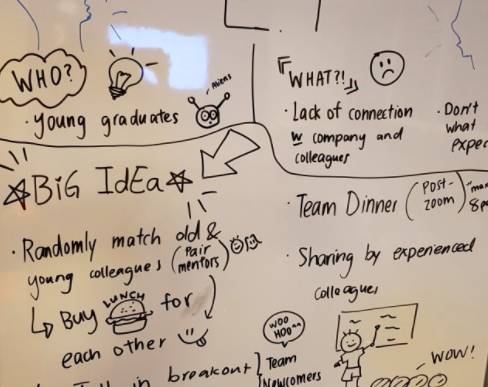 WHO?
Aliens
· Young graduates
"WHAT?!"
· Lack of connection
w company and
colleagues
· Don't
what
BIG IdEa
· Randomly match old &
young colleagues (Pair
mentors)
↳ BUY LUNCH for
each other
in breakout
Team
Newcomers
· Team Dinner (POST-
ZOOM)
· Sharing by experienced
colleagues
WOO
HOO
WOW!